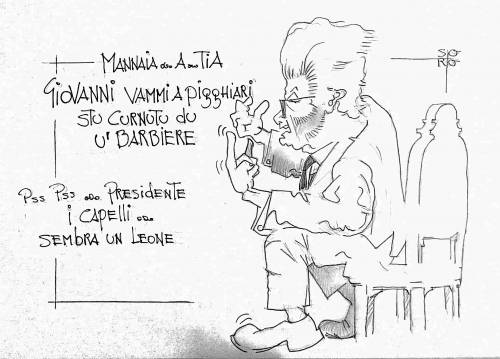 MANNAIA ... A ... TIA
GIOVANNI VAMMI A PIGGHIARI
STU CURNUTU DU
U' BARBIERE
PSS PSS ... PRESIDENTE
I CAPELLI ...
SEMBRA UN LEONE
SO
RO